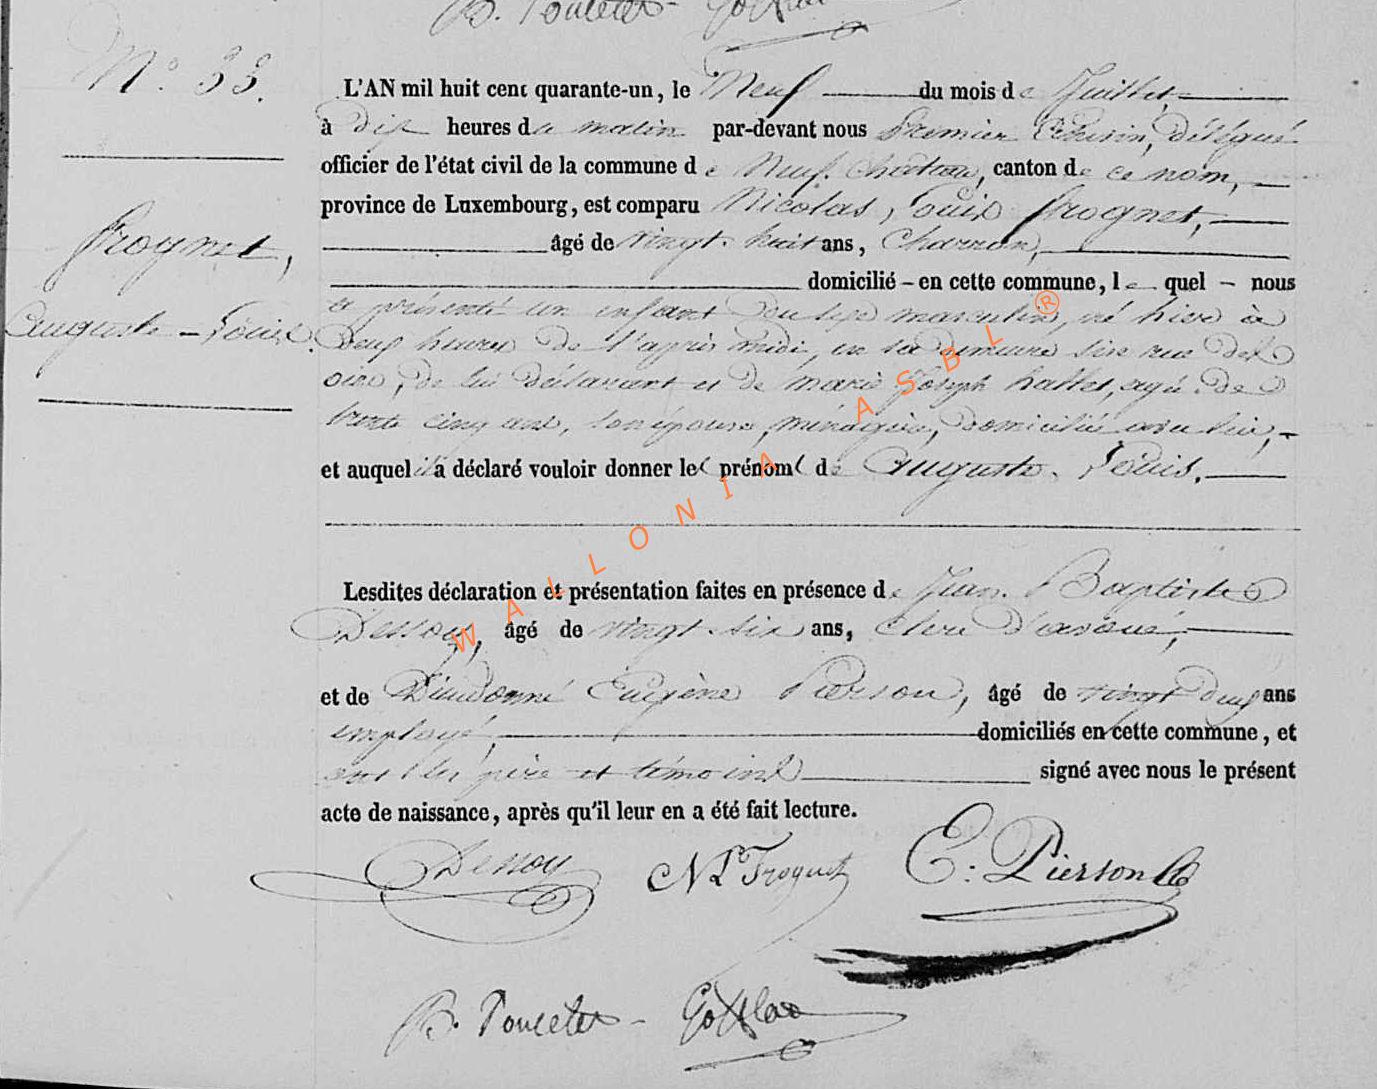 B. Poncelet
N.° 33.
L'AN mil huit cent quarante-un, le Neuf du mois de Juillet,
à dix heures du matin par-devant nous Premier Echevin, délégué
officier de l'état civil de la commune de Neufchateau, canton de ce nom,
province de Luxembourg, est comparu Nicolas, Louis Frognet,
Frognet,
âgé de vingt-huit ans, Charron,
domicilié - en cette commune, le quel - nous
Auguste - Louis.
a présenté un enfant du sexe masculin, né hier à
deux heures de l'après midi, en sa demeure sise rue
de lui déclarant et de marie Joseph hallet, agée de
trente cinq ans, son épouse, ménagère, domiciliée avec lui,
et auquel il a déclaré vouloir donner les prénoms de Auguste Louis.
Lesdites déclaration et présentation faites en présence de Jean Baptiste
Dessoy, âgé de vingt-six ans, clerc d'avoué,
et de Dieudonné Eugène Pierson, âgé de vingt deux ans
employé, domiciliés en cette commune, et
ont les père et témoins signé avec nous le présent
acte de naissance, après qu'il leur en a été fait lecture.
Dessoy NL Frognet E. Pierson
B. Poncelet
WALLONIA ASBL ®